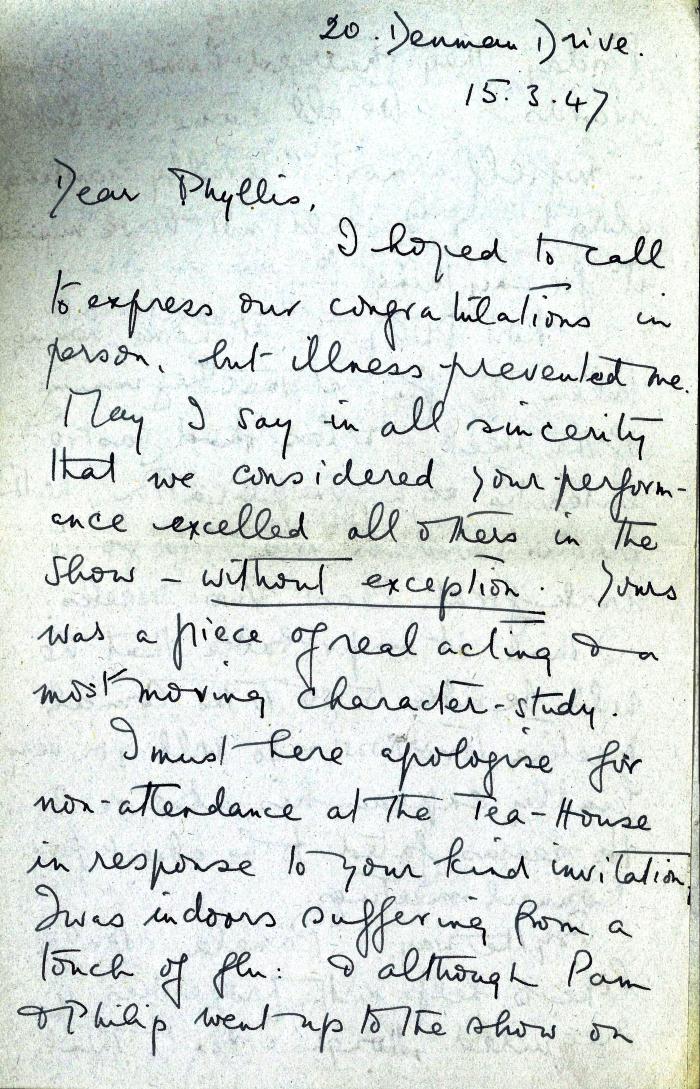 20. Denman Drive.
15.3.47
Dear Phyllis,
I hoped to call
to express our congratulations in
person, but illness prevented me.
May I say in all sincerity
that we considered your perform-
ance excelled all others in the
show - without exception. Yours
was a piece of real acting & a
most moving character-study.
I must here apologise for
non-attendance at the Tea-House
in response to your kind invitation;
I was indoors suffering from a
touch of flu: & although Pam
& Philip went up to the show on